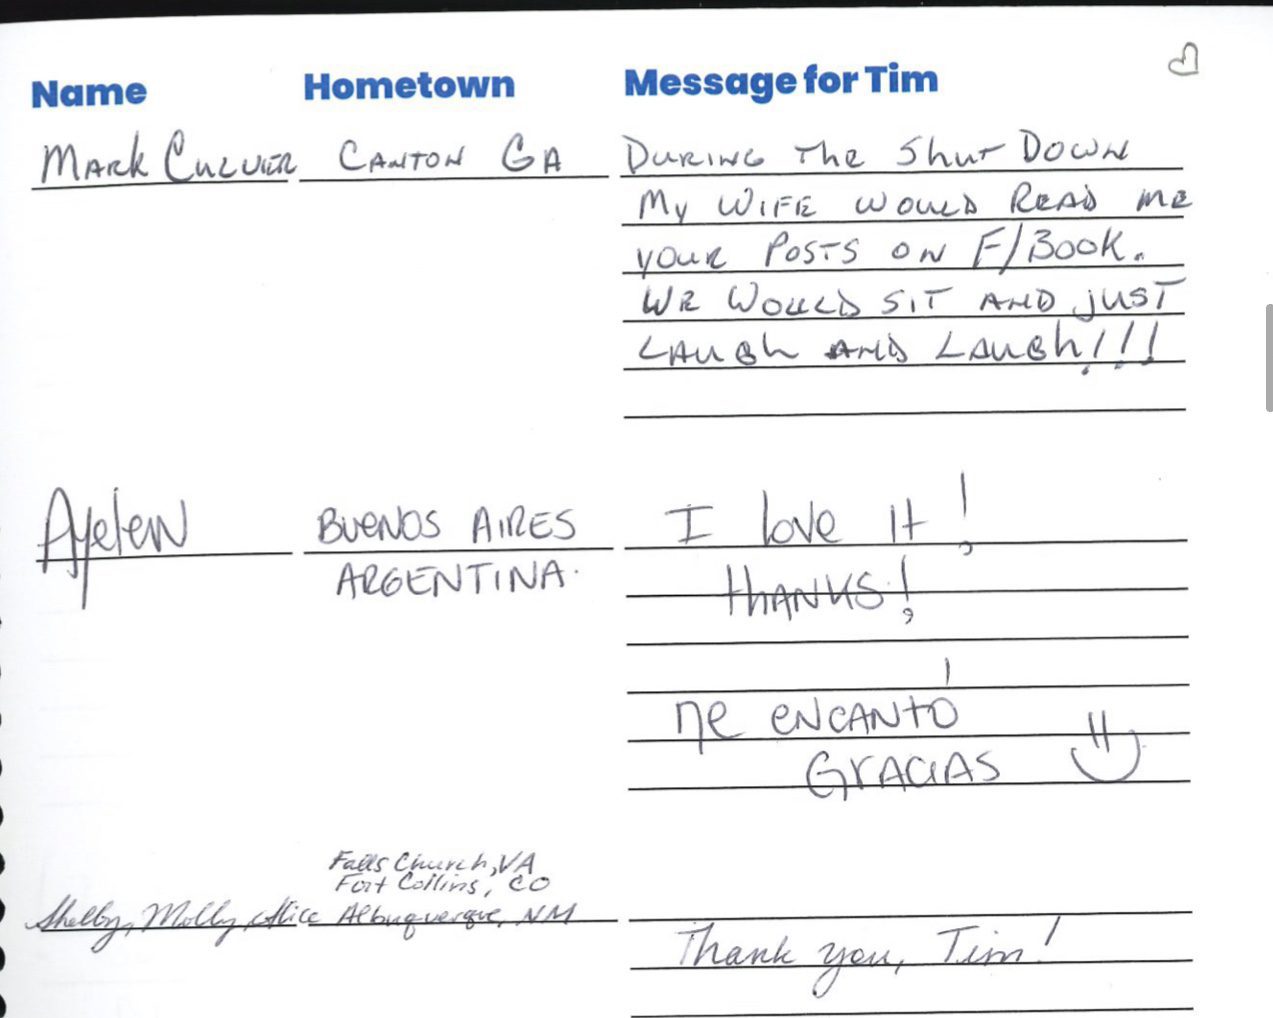 Name Hometown Message for Tim
Mark Culver Canton GA During the Shut Down
My wife would read me
your posts on F/Book.
We would sit and just
laugh and laugh!!!
Ayelen BUENOS AIRES I love it!
ARGENTINA. thanks!
Me encantó
GRACIAS
Falls Church, VA
Fort Collins, CO
Shelby, Molly, Alice Albuquerque, NM
Thank you, Tim!